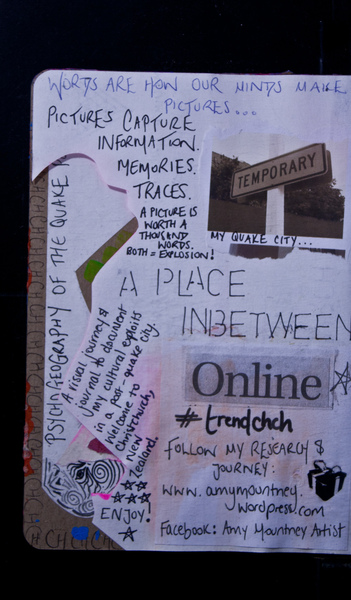 WORDS ARE HOW OUR MINDS MAKE
PICTURES...
PICTURES CAPTURE
INFORMATION.
MEMORIES.
TRACES.
A PICTURE IS
WORTH A
THOUSAND
WORDS.
BOTH = EXPLOSION!
TEMPORARY
MY QUAKE CITY...
PSYCHOGEOGRAPHY OF THE QUAKE
A PLACE
INBETWEEN
A visual journey &
journal to document
my cultural exploits
in a post-quake city.
Welcome to
Christchurch,
New
Zealand.
ENJOY!
Online
#trendchch
FOLLOW MY RESEARCH &
JOURNEY:
www.amymountney.
wordpress.com
Facebook: Amy Mountney Artist
CHCHCHCH